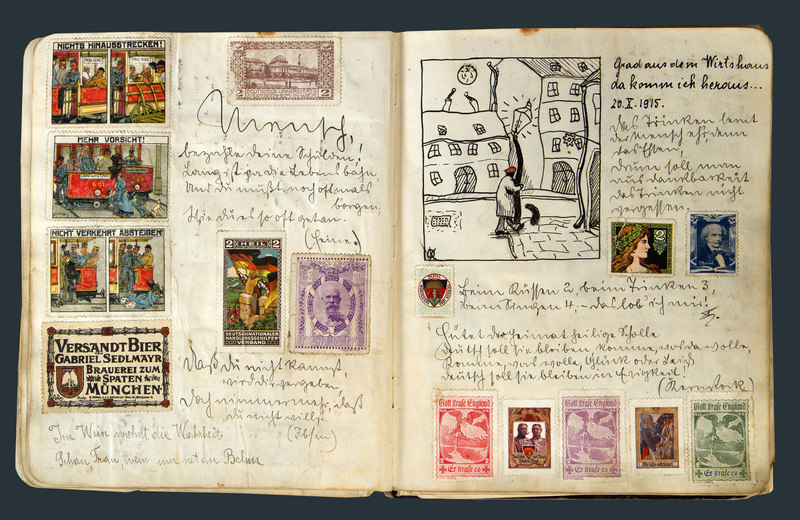 NICHTS HINAUSSTRECKEN!
MEHR VORSICHT!
NICHT VERKEHRT ABSTEIGEN!
VERSANDT BIER
GABRIEL SEDLMAYR
BRAUEREI ZUM
SPATEN
MÜNCHEN
2 2
Mensch,
bezahle deine Schulden!
Lang ist ja die Lebensbahn
Und du mußt noch oftmals
borgen,
Wie du es so oft getan.
(Heine.)
2 HEIL 2
DEUTSCHNATIONALER
HANDLUNGSGEHILFEN
VERBAND
Daß du nicht kannst,
wird dir vergeben
Doch nimmermehr, daß
du nicht willst
(Ibsen)
Im Wein wohnt die Wahrheit
Schau Trau, wem
Grad aus dem Wirtshaus
da komm ich heraus...
20. X. 1915.
Das Trinken lernt
der Mensch eh'r, denn
das Essen.
Drum soll man
aus Dankbarkeit
das Trinken nicht
vergessen.
2
Beim Küssen 2, beim Trinken 3,
beim Singen 4, - das lob' ich mir!
Hütet der Heimat heilige Scholle,
deutsch soll sie bleiben komme, was da wolle,
Komme, was wolle, Glück oder Leid
deutsch soll sie bleiben in Ewigkeit!
(Kernstock.)
Gott strafe England
Er strafe es
Gott strafe England
Er strafe es
Gott strafe England
Er strafe es